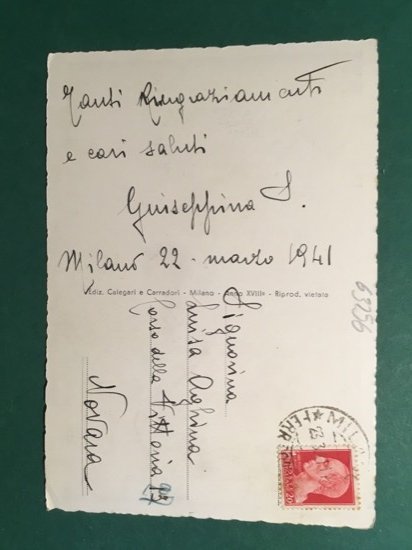 Tanti Ringraziamenti
e cari saluti
Giuseppina S.
Milano 22 - marzo 1941
Ediz. Calegari e Carradori - Milano - Anno XVIII° - Riprod. vietata
Signorina
Luisa
Corso della Vittoria
Novara
63256
MIL
FERR